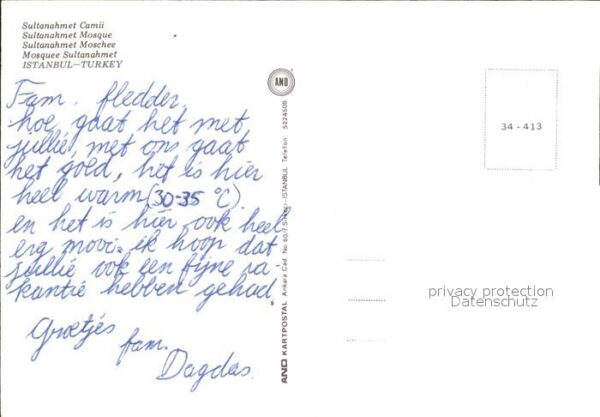 Sultanahmet Camii
Sultanahmet Mosque
Sultanahmet Moschee
Mosquee Sultanahmet
ISTANBUL—TURKEY
Fam. fledder,
hoe gaat het met
jullië, met ons gaat
het goed, het is hier
heel warm (30-35 °C)
en het is hier ook heel
erg mooi. ik hoop dat
jullië ook een fijne va-
kantië hebben gehad.
Groetjes
fam.
Dagdas.
AND
AND KARTPOSTAL Ankara Cad. No: 60/7 - ISTANBUL Telefon: 5224508
34 - 413
privacy protection
Datenschutz